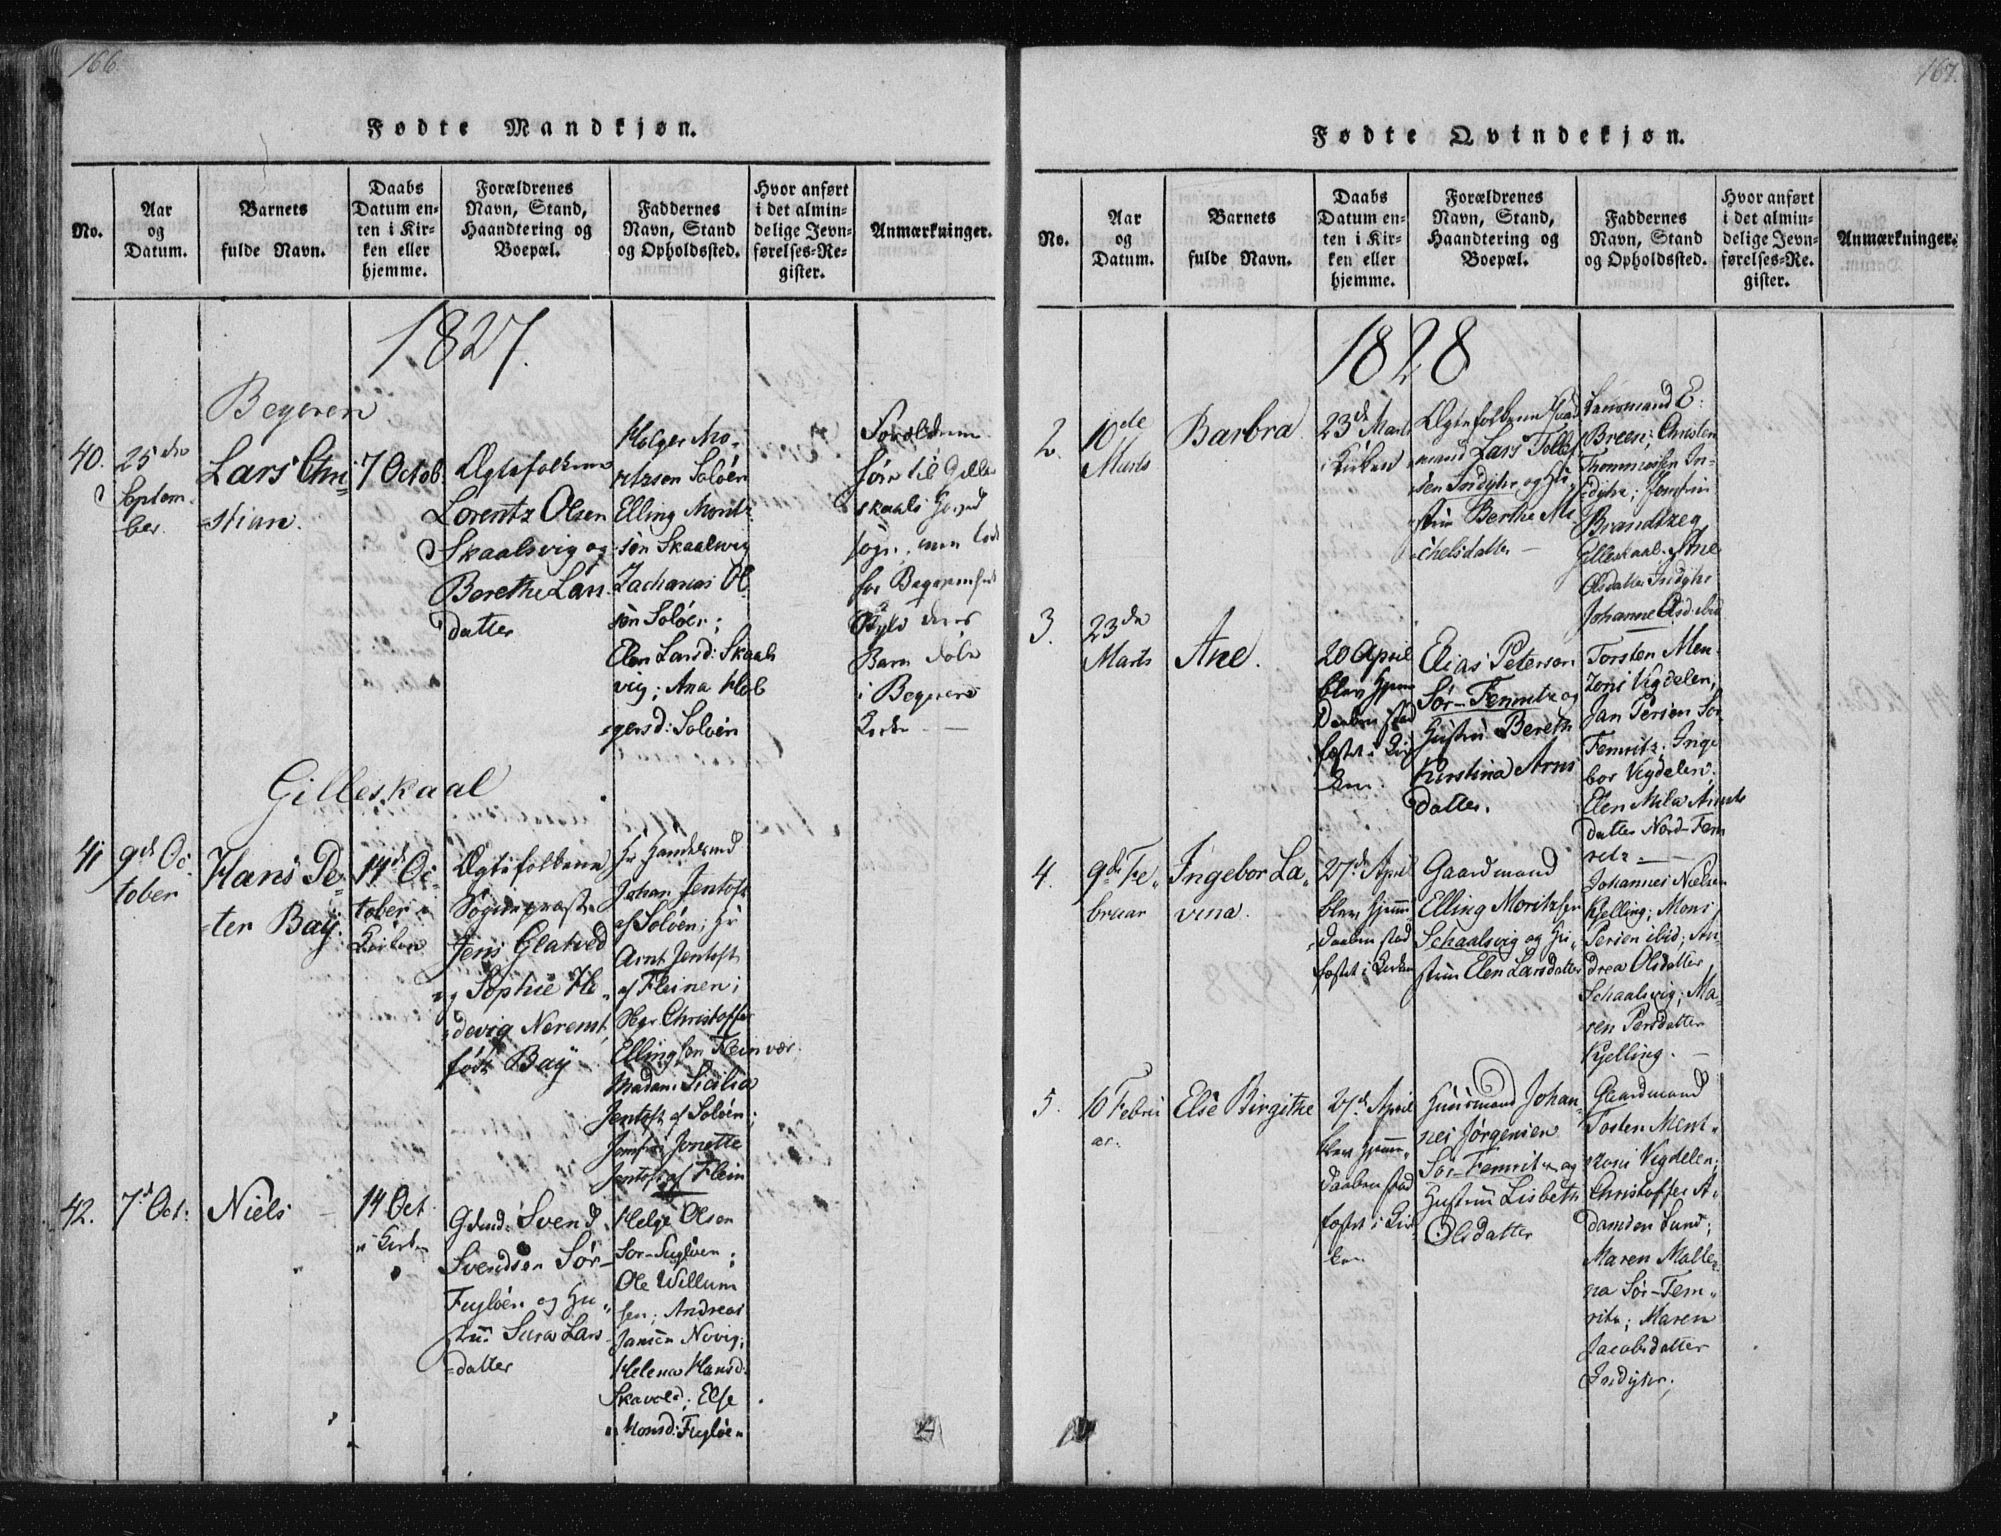 166.
Fødte Mandkjøn.
No.
Aar
og
Datum.
Barnets
fulde Navn.
Daabs
Datum en-
ten i Kir-
ken eller
hjemme.
Forældrenes
Navn, Stand,
Haandtering og
Boepæl.
Faddernes
Navn, Stand
og Opholdssted.
Hvor anført
i det almin-
delige Jevn-
førelses-Re-
gister.
Anmærkninger.
1827.
Begeren
40.
25de
Septem-
ber
Lars Chri-
stian.
7 Octob.
Ægtefolkene
Lorentz Olsen
Skaalsvig og
Berethe Lars
datter
Holger Mo-
ritzsen Soløen
Elling Moritz
søn Skaalsvig
Zacharias Ol
søn Soløen;
Elen Larsd: Skaals
vig; Ana Hol
gersd: Soløen
Forældrene
høre til Gilles
kaals Hoved
sogn, men lode
for
deres
Barn døbe
i Begerens
Kirke
Gilleskaal
41
9de Oc-
tober
Hans Pe-
ter Bay.
14de Oc-
tober i
Kirken
Ægtefolkene
Sognepræst
Jens Glatved
og Sophie He-
devig Neremt
født Bay
Hr Handelsmd
Johan Jentoft
af Soløen; Hr
Arnt Jentoft
af Fleinen;
Hgr Christoffer
Ellingsen Fleinvær
Madam Sicilia
Jentoft af Soløen;
Jomfru Jonette
Jentoft af Flein
42.
7de Oct:
Niels
14 Oct
i Kirk-
Gdmd: Svend
Svendsen Sør-
Fugløen og Hu-
stru Sara Lars-
datter
Helge Olsen
Sør-Fugløen;
Ole Willum
sen; Andreas
Jansen Novig;
Helena Hansd:
Skavold; Else
Monsd: Fugløen
167.
Fødte Qvindekjøn.
No.
Aar
og
Datum.
Barnets
fulde Navn.
Daabs
Datum en-
ten i Kir-
ken eller
hjemme.
Forældrenes
Navn, Stand,
Haandtering og
Boepæl.
Faddernes
Navn, Stand
og Opholdssted.
Hvor anført
i det almin-
delige Jevn-
førelses-Re-
gister.
Anmærkninger.
1828
2.
10de
Marts
Barbra
23de Marts
i Kirken
Ægtefolkene Huus
mand Lars Tollef
sen Indyhr og Hu-
stru Berthe Mi-
chelsdatter
Lensmand E:
Breese; Christen
Thommassen In-
dyhr; Jomfru
Brandtzeg
Gilleskaal. Ane
Olsdatter Indyhr
Johanne Olsd ibid
3.
23de
Marts
Ane.
20 April
blev Hjemme
Daaben stad
fæstet i Kir
ken.
Elias Petersen
Sør-Femritz og
Hustru Bereth
Kirstina Arns
datter.
Torsten Men-
zons Vigdelen;
Jan Persen Sør
Femritz. Inge
bor Vigdelen;
Elen Mila Arnts
datter Nord-Fem
ritz
4.
9de Fe-
bruar
Ingebor La-
vina.
27de April
blev Hjemme
daaben stad
fæstet i Kirken
Gaardmand
Elling Moritzsen
Schaalsvig og Hu-
stru Elen Larsdatter
Johannes Nielsen
Kjelling; Mons
Persen ibid; An-
drea Olsdatter
Schaalsvig; Ma-
ren Persdatter
Kjelling.
5.
10 Febru
ar.
Else Birgithe
27de April
blev Hjemme-
daaben stad
fæstet i Kir
ken
Huusmand Johan-
nes Jørgensen
Sør-Femritz og
Hustru Lisbeth
Olsdatter
Gaardmand
Tosten Ment-
zons Vigdelen;
Christoffer A-
damsen Lund;
Maren Malle-
na Sør-Fem-
ritz; Maren
Jacobsdatter
Indyhr.